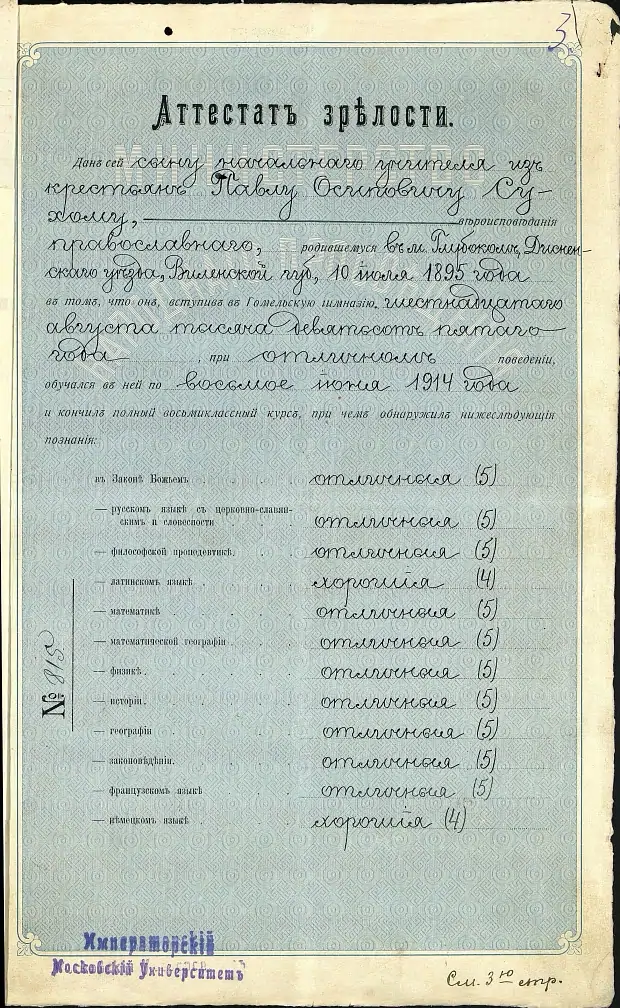 3
Аттестатъ зрѣлости.
Данъ сей сыну начальнаго учителя изъ
крестьянъ Павлу Осиповичу Су-
хому, вѣроисповѣданія
православнаго, родившемуся въ м. Глубокомъ, Диснен-
скаго уѣзда, Виленской губ., 10 іюля 1895 года
въ томъ, что онъ, вступивъ въ Гомельскую гимназію, шестнадцатаго
августа тысяча девятьсотъ пятаго
года, при отличномъ поведеніи,
обучался въ ней по восьмое іюня 1914 года
и кончилъ полный восьмиклассный курсъ, при чемъ обнаружилъ нижеслѣдующія
познанія:
въ Законѣ Божьемъ отличныя (5)
— русскомъ языкѣ съ церковно-славян-
скимъ и словесности отличныя (5)
— философской пропедевтикѣ отличныя (5)
— латинскомъ языкѣ хорошія (4)
— математикѣ отличныя (5)
— математической географіи отличныя (5)
— физикѣ отличныя (5)
— исторіи отличныя (5)
— географіи отличныя (5)
— законовѣдѣніи отличныя (5)
— французскомъ языкѣ отличныя (5)
— нѣмецкомъ языкѣ хорошія (4)
№ 815
Императорскій
Московскій Университетъ
См. 3ю стр.